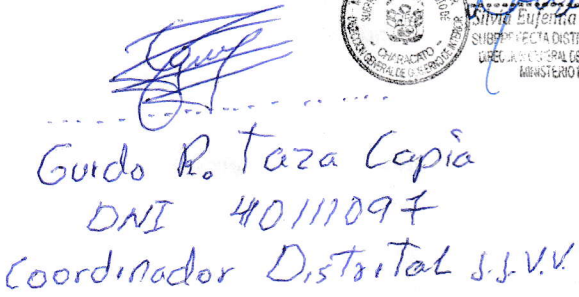 CHARACATO
Silvia Eufemia
SUBPREFECTA DISTR
DIRECCION GENERAL DE
MINISTERIO
Guido R. Taza Capia
DNI 40111097
Coordinador Distrital J.J.V.V.